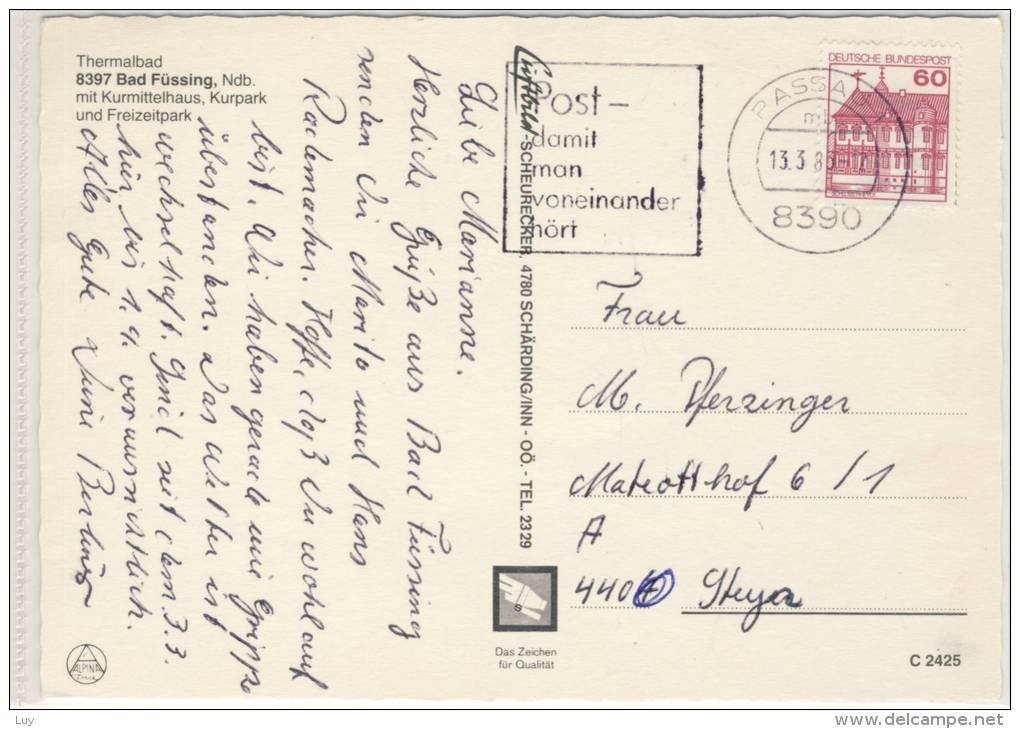 Thermalbad
8397 Bad Füssing, Ndb.
mit Kurmittelhaus, Kurpark
und Freizeitpark
Liebe Marianne.
Herzliche Grüße aus Bad Füssing
senden Dir Marito und Hans
Rademacher. Hoffe, daß Du wohlauf
bist. Wir haben gerade eine Grippe
überstanden. Das Wetter ist
wechselhaft. Sind seit dem 3.3.
hier bis 1.4. voraussichtlich.
Alles Gute Deine
Luftbild-SCHEURECKER, 4780 SCHÄRDING/INN - OÖ. - TEL. 2329
Post-
damit
man
voneinander
hört
PASSAU 1
13.3.8
8390
DEUTSCHE BUNDESPOST
60
Frau
M. Pferzinger
6/1
A
440
Steyr
Das Zeichen
für Qualität
C 2425
ALPINA
Luy
www.delcampe.net